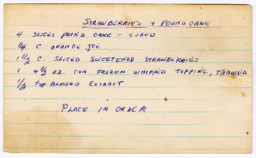 STRAWBERRIES & POUND CAKE
4 SLICES POUND CAKE - CUBED
3/4 C. ORANGE JCE
1 1/2 C. SLICED SWEETENED STRAWBERRIES
1 4 1/2 OZ. CON FROZEN WHIPPED TOPPING, THAWED
1/8 tsp ALMOND EXTRACT
PLACE IN ORDER